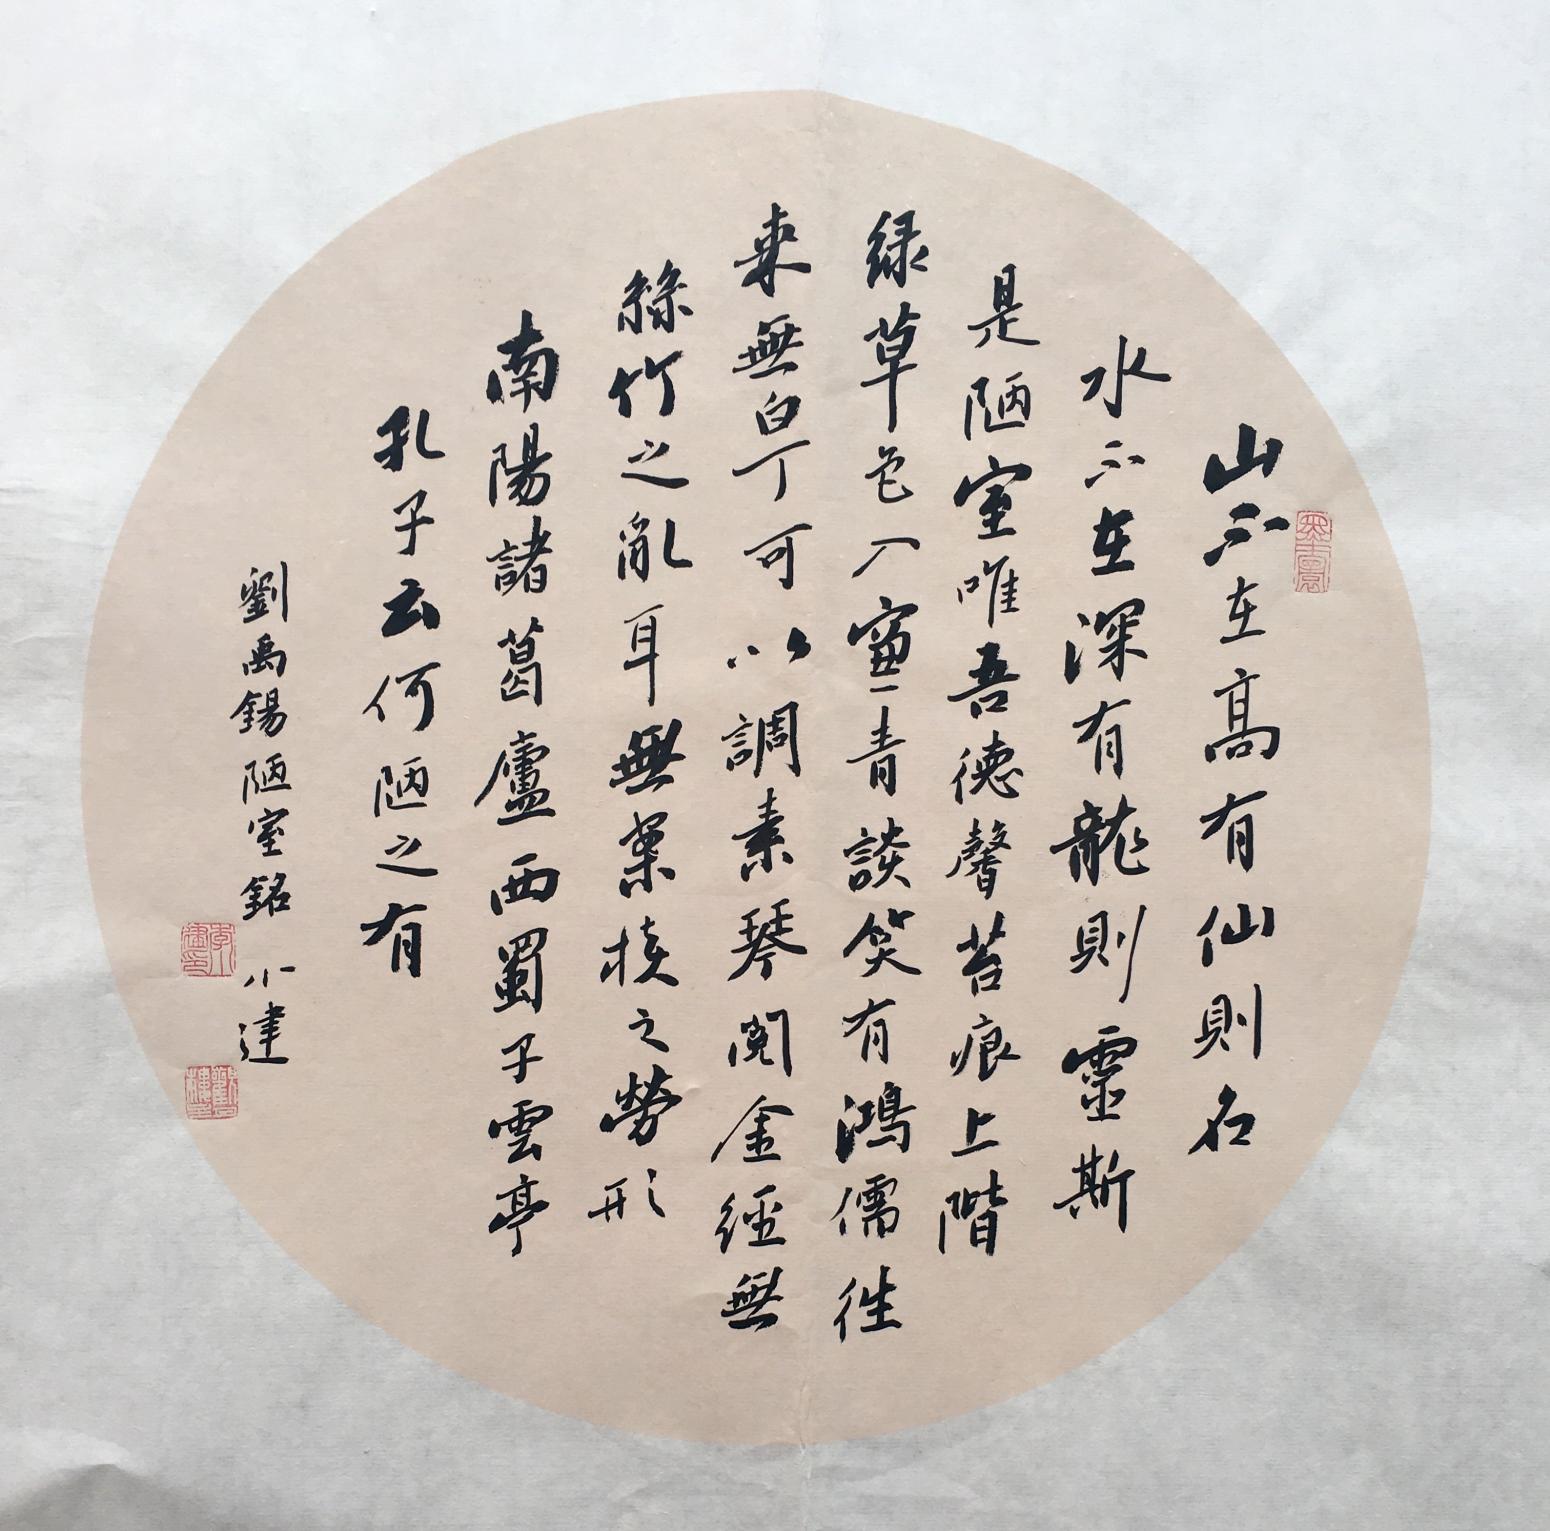 山不在高有仙則名
水不在深有龍則靈斯
是陋室唯吾德馨苔痕上階
緑草色入簾青談笑有鴻儒往
來無白丁可以調素琴閱金經無
絲竹之亂耳無案牘之勞形
南陽諸葛廬西蜀子雲亭
孔子云何陋之有
劉禹錫陋室銘 小建